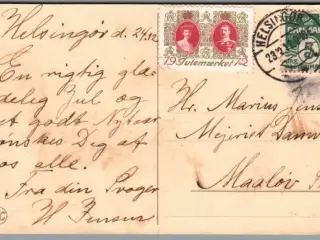 Helsingør d. 24/12
En rigtig glæ
delig Jul og
et godt Nytaar
ønskes Dig af
os alle.
Fra din Svoger
H Jensen
19 Julemærket 12
HELSINGØR
DANMARK
5
Hr. Marius Jensen
Mejeriet Damv
Maaløv